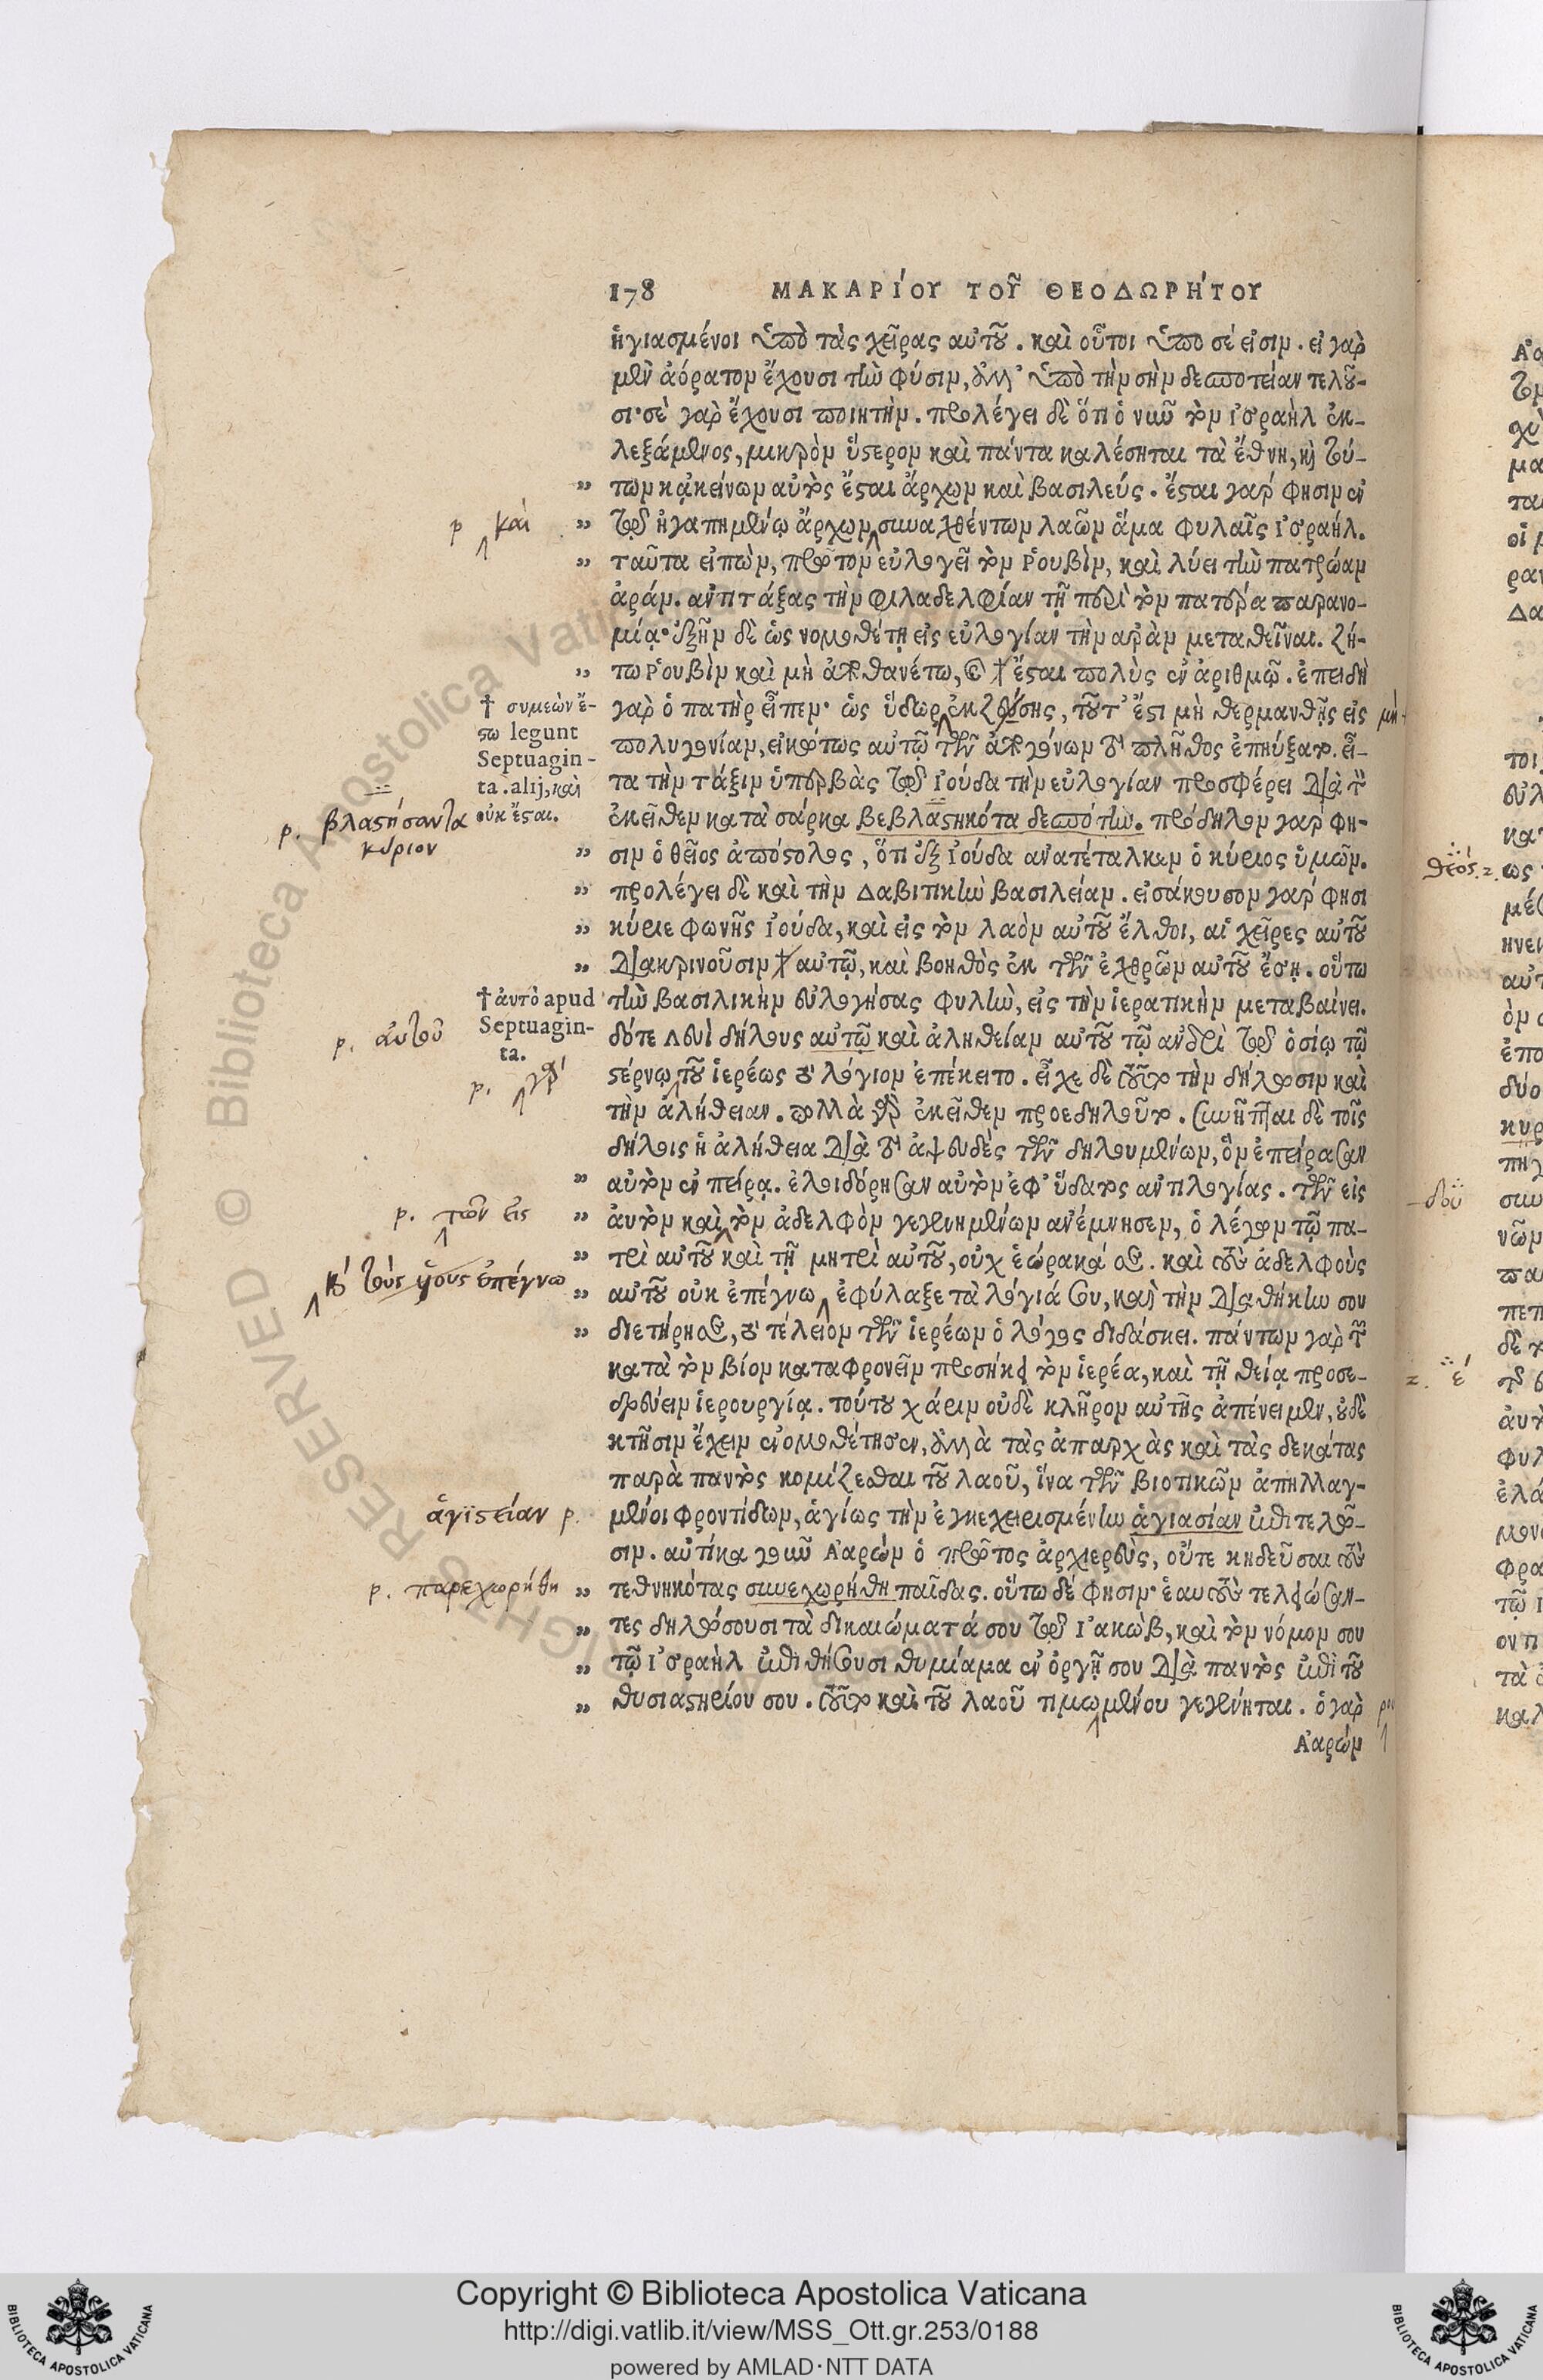 178 ΜΑΚΑΡΙΟΥ ΤΟΥ͂ ΘΕΟΔΩΡΉΤΟΥ
ἡγιασμένοι ὑπὸ τὰς χεῖρας αὐτοῦ. καὶ οὗτοι ὑπο σέ εἰσιν. εἰ γὰρ
μὲν ἀόρατον ἔχουσι τὴν φύσιν, ἀλλ’ ὑπὸ τὴν σὴν δεσποτείαν τελοῦ-
σι· σὲ γὰρ ἔχουσι ποιητήν. προλέγει δὲ ὅτι ὁ νῦν τὸν ἰσραὴλ ἐκ-
λεξάμενος, μικρὸν ὕστερον καὶ πάντα καλέσηται τὰ ἔθνη, καὶ τού-
„ των κἀκείνων αὐτὸς ἔσται ἄρχων καὶ βασιλεύς. ἔσται γάρ φησιν ἐν
p καὶ
„ τῷ ἠγαπημένῳ ἄρχων, συναχθέντων λαῶν ἅμα φυλαῖς ἰσραήλ.
„ ταῦτα εἰπὼν, πρῶτον εὐλογεῖ τὸν Ῥουβὶν, καὶ λύει τὴν πατρῴαν
ἀράν. ἀντιτάξας τὴν φιλαδελφίαν τῇ περὶ τὸν πατέρα παρανο-
μίᾳ· ἐξῆν δὲ ὡς νομοθέτῃ εἰς εὐλογίαν τὴν ἀρὰν μεταθεῖναι. ζή-
„ τω Ῥουβὶν καὶ μὴ ἀποθανέτω, καὶ † ἔσται πολὺς ἐν ἀριθμῷ. ἐπειδὴ
† συμεὼν ἔ-
στω legunt
Septuagin-
ta. alij, καὶ
οὐκ ἔσται.
γὰρ ὁ πατὴρ εἶπεν· ὡς ὕδωρ ἐκζέσης, τοῦτ’ ἔστι μὴ θερμανθῇς εἰς
μὴ
πολυγονίαν, εἰκότως αὐτῷ τῶν ἀπογόνων τὸ πλῆθος ἐπηύξατο. εἶ-
τα τὴν τάξιν ὑπερβὰς τῷ Ἰούδα τὴν εὐλογίαν προσφέρει διὰ τὸν
p. βλαστήσαντα
κύριον
ἐκεῖθεν κατὰ σάρκα βεβλαστηκότα δεσπότην. πρόδηλον γάρ φη-
„ σιν ὁ θεῖος ἀπόστολος, ὅτι ἐξ Ἰούδα ἀνατέταλκεν ὁ κύριος ὑμῶν.
„ προλέγει δὲ καὶ τὴν Δαβιτικὴν βασιλείαν. εἰσάκουσον γάρ φησι
„ κύριε φωνῆς Ἰούδα, καὶ εἰς τὸν λαὸν αὐτοῦ ἔλθοι, αἱ χεῖρες αὐτοῦ
„ διακρινοῦσιν † αὐτῷ, καὶ βοηθὸς ἐκ τῶν ἐχθρῶν αὐτοῦ ἔσῃ. οὕτω
† ἀυτὸ apud
Septuagin-
ta.
τὴν βασιλικὴν εὐλογήσας φυλὴν, εἰς τὴν ἱερατικὴν μεταβαίνει.
p. ἀυτοῦ
δότε Λευὶ δήλους αὐτῷ καὶ ἀληθείαν αὐτοῦ τῷ ἀνδρὶ τῷ ὁσίῳ τῷ
p. γὰρ
στέρνῳ τοῦ ἱερέως τὸ λόγιον ἐπέκειτο. εἶχε δὲ τοῦτο τὴν δήλωσιν καὶ
τὴν ἀλήθειαν. πολλὰ γὰρ ἐκεῖθεν προεδηλοῦτο. συνῆπται δὲ τοῖς
δήλοις ἡ ἀλήθεια διὰ τὸ ἀψευδὲς τῶν δηλουμένων, ὃν ἐπείρασαν
„ αὐτὸν ἐν πείρᾳ. ἐλοιδόρησαν αὐτὸν ἐφ’ ὕδατος ἀντιλογίας. τῶν εἰς
p. τῶν εἰς
„ ἀυτὸν καὶ τὸν ἀδελφὸν γεγενημένων ἀνέμνησεν, ὁ λέγων τῷ πα-
„ τρὶ αὐτοῦ καὶ τῇ μητρὶ αὐτοῦ, οὐχ ἑώρακά σε. καὶ τοὺς ἀδελφοὺς
κ τοὺς υἱοὺς ἐπέγνω
„ αὐτοῦ οὐκ ἐπέγνω, ἐφύλαξε τὰ λόγιά σου, καὶ τὴν διαθήκην σου
„ διετήρησε, τὸ τέλειον τῶν ἱερέων ὁ λόγος διδάσκει. πάντων γὰρ τῶν
κατὰ τὸν βίον καταφρονεῖν προσήκει τὸν ἱερέα, καὶ τῇ θείᾳ προσε-
δρεύειν ἱερουργίᾳ. τούτου χάριν οὐδὲ κλῆρον αὐτῆς ἀπένειμεν, οὐδὲ
κτῆσιν ἔχειν ἐνομοθέτησεν, ἀλλὰ τὰς ἀπαρχὰς καὶ τὰς δεκάτας
παρὰ παντὸς κομίζεσθαι τοῦ λαοῦ, ἵνα τῶν βιοτικῶν ἀπηλλαγ-
ἁγιστείαν p.
μένοι φροντίδων, ἁγίως τὴν ἐγκεχειρισμένην ἁγιασίαν ἐπιτελῶ-
σιν. αὐτίκα γοῦν Ἀαρὼν ὁ πρῶτος ἀρχιερεὺς, οὔτε κηδεῦσαι τοὺς
p. παρεχωρήθη
„ τεθνηκότας συνεχωρήθη παῖδας. οὕτω δέ φησιν· ἑαυτοὺς τελειώσαν-
„ τες δηλώσουσι τὰ δικαιώματά σου τῷ Ἰακὼβ, καὶ τὸν νόμον σου
„ τῷ Ἰσραὴλ ἐπιθήσουσι θυμίαμα ἐν ὀργῇ σου διὰ παντὸς ἐπὶ τοῦ
„ θυσιαστηρίου σου. τοῦτο καὶ τοῦ λαοῦ τιμωμένου γεγένηται. ὁ γὰρ
Ἀαρών
θεός. 2.
δοῦ
2. έ
Copyright © Biblioteca Apostolica Vaticana
http://digi.vatlib.it/view/MSS_Ott.gr.253/0188
powered by AMLAD·NTT DATA
BIBLIOTECA APOSTOLICA VATICANA
BIBLIOTECA APOSTOLICA VATICANA